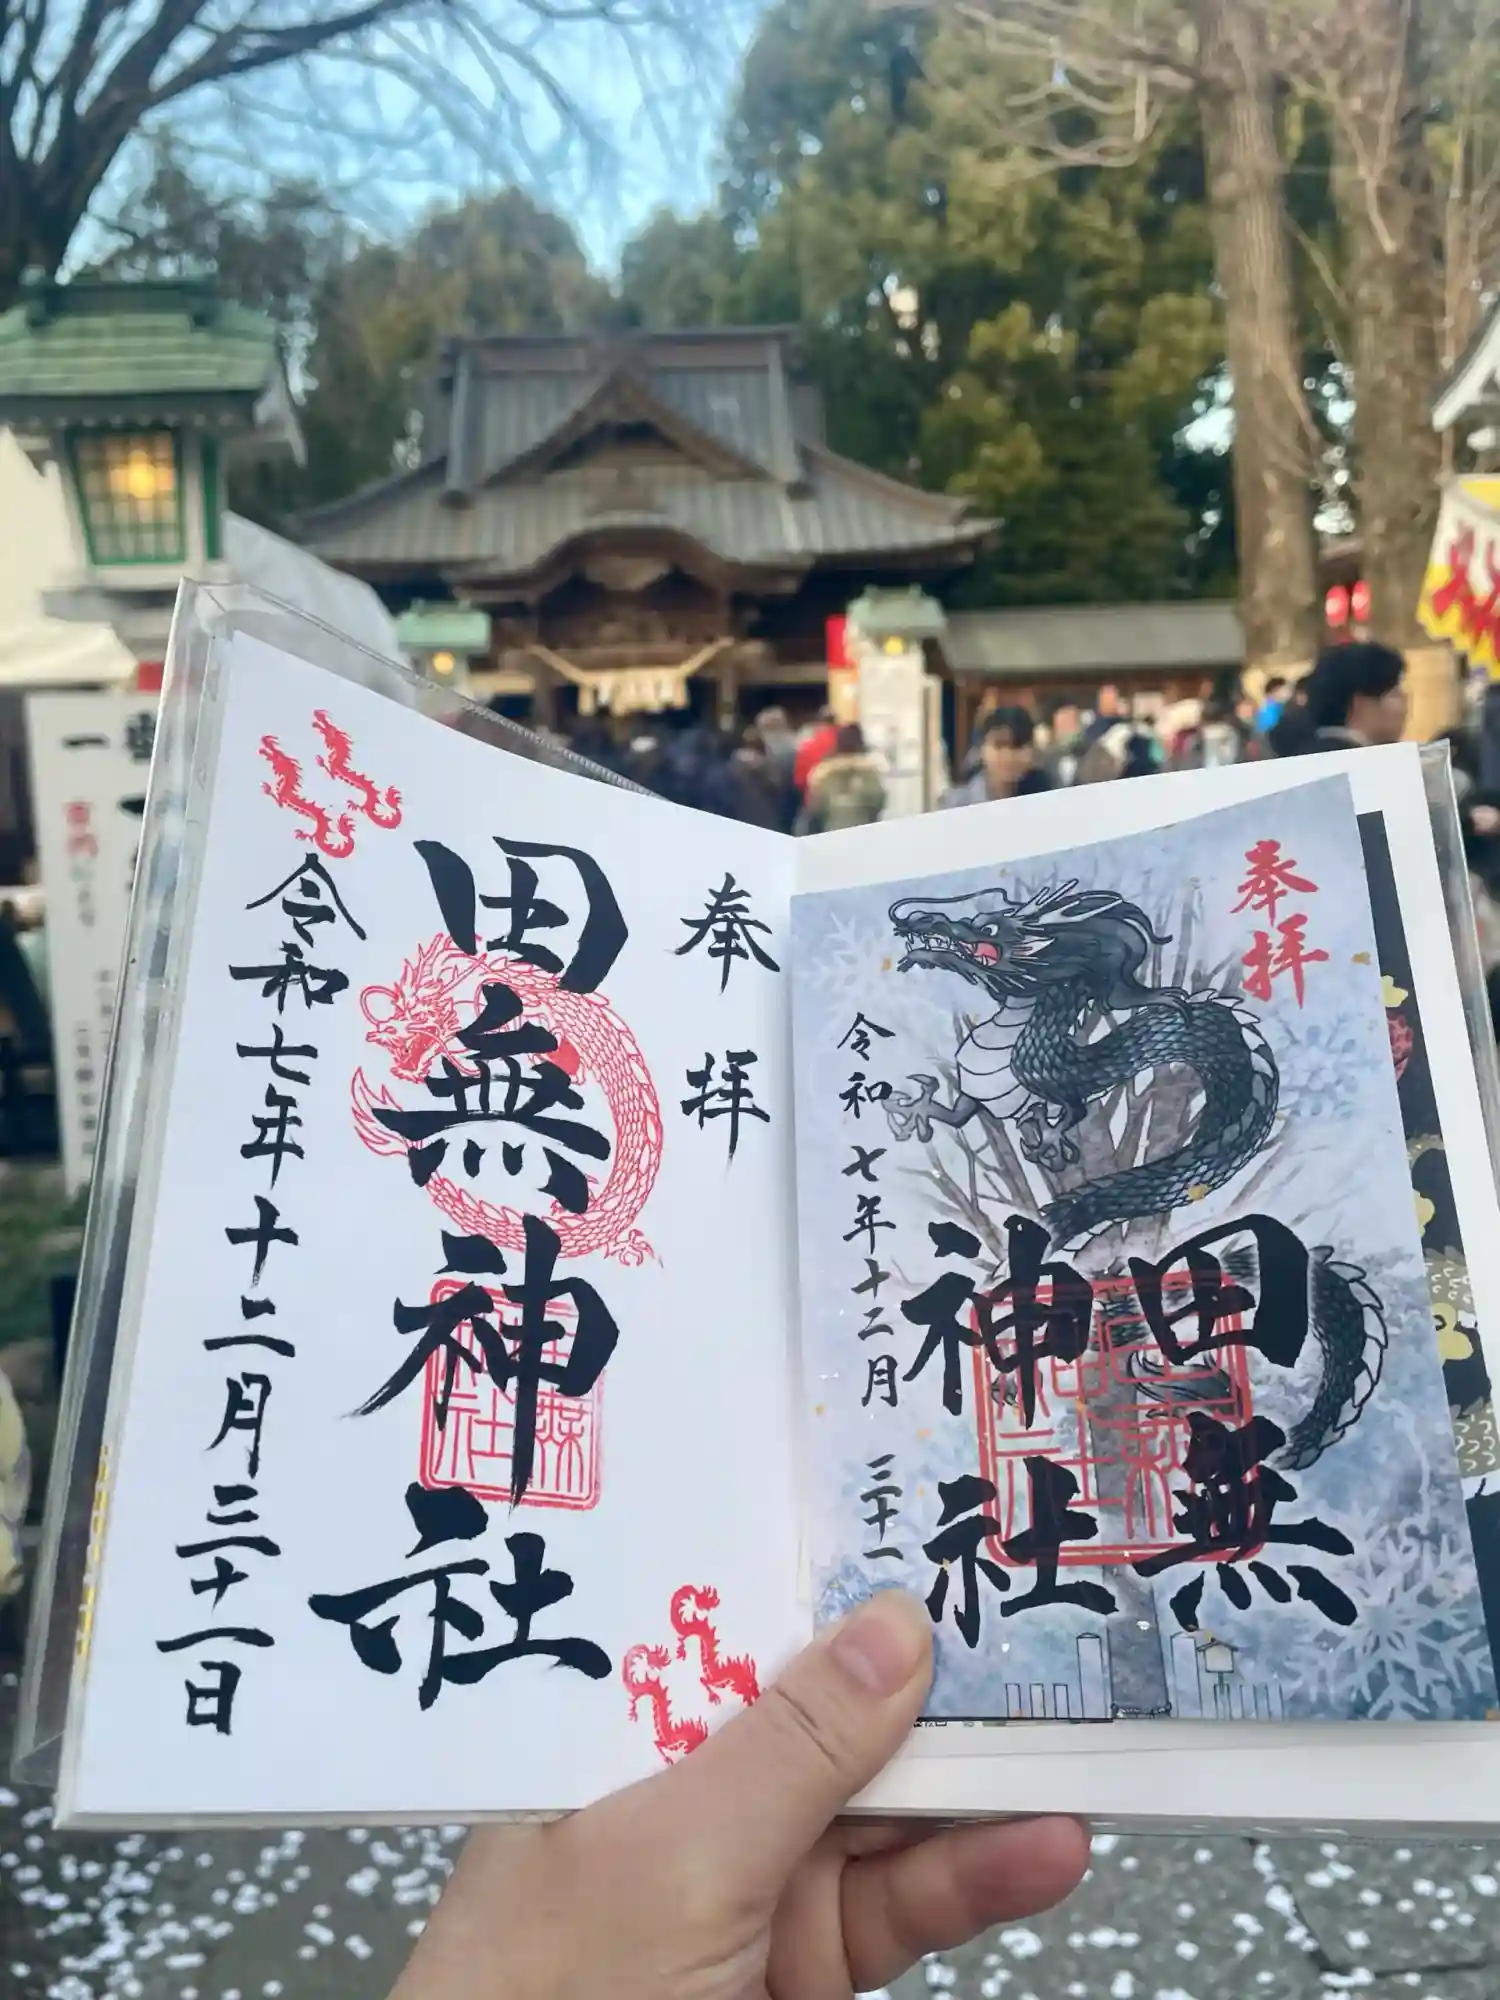 奉拝
田無神社
令和七年十二月三十一日
奉拝
田無
神社
令和七年十二月三十一